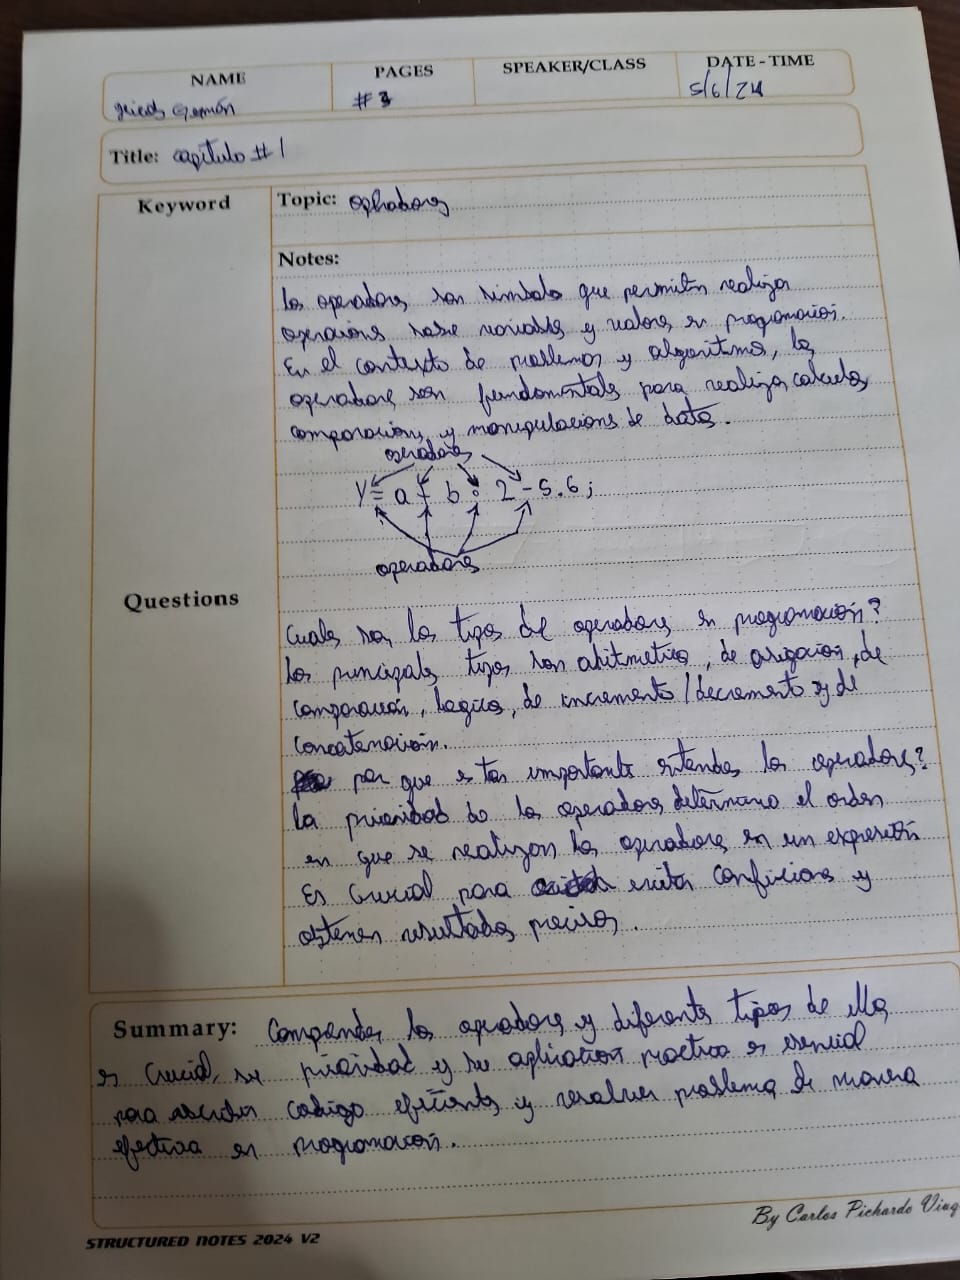 NAME
PAGES
SPEAKER/CLASS
DATE - TIME
Germán
# 3
5/6/24
Title: capítulo # 1
Keyword
Topic: operadores
Notes:
Los operadores son simbolo que permiten realizar
operaciones sobre variables y valores en programación.
En el contexto de problemas y algoritmo, los
operadores son fundamentales para realizar calculos,
comparaciones y manipulaciones de datos.
operadores
Y = a + b : 2 - 5.6 ;
operadores
Questions
Cuales son los tipos de operadores en programación?
Los principales tipos son aritmetico, de asignacion, de
comparación, logico, de incremento / decremento y de
concatenación.
por que es tan importante entender los operadores?
La prioridad de los operadores determina el orden
en que se realizan los operadores en un expresión
Es crucial para evitar confuciones y
obtener resultados precisos.
Summary: Comprender los operadores y diferentes tipos de ellos
es crucial, su prioridad y su aplicación practica es esencial
para escribir codigo eficiente y resolver problema de manera
efectiva en programación.
By Carlos Pichardo
STRUCTURED NOTES 2024 V2